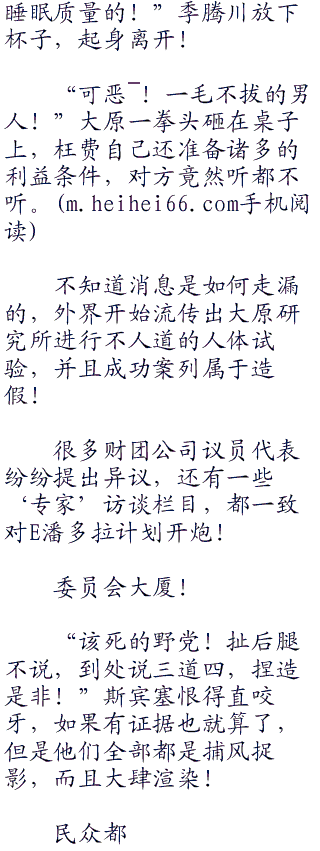 睡眠质量的！”季腾川放下
杯子，起身离开！
“可恶ˉ！一毛不拔的男
人！”大原一拳头砸在桌子
上，枉费自己还准备诸多的
利益条件，对方竟然听都不
听。(m.heihei66.com手机阅
读)
不知道消息是如何走漏
的，外界开始流传出大原研
究所进行不人道的人体试
验，并且成功案列属于造
假！
很多财团公司议员代表
纷纷提出异议，还有一些
‘专家’访谈栏目，都一致
对E潘多拉计划开炮！
委员会大厦！
“该死的野党！扯后腿
不说，到处说三道四，捏造
是非！”斯宾塞恨得直咬
牙，如果有证据也就算了，
但是他们全部都是捕风捉
影，而且大肆渲染！
民众都